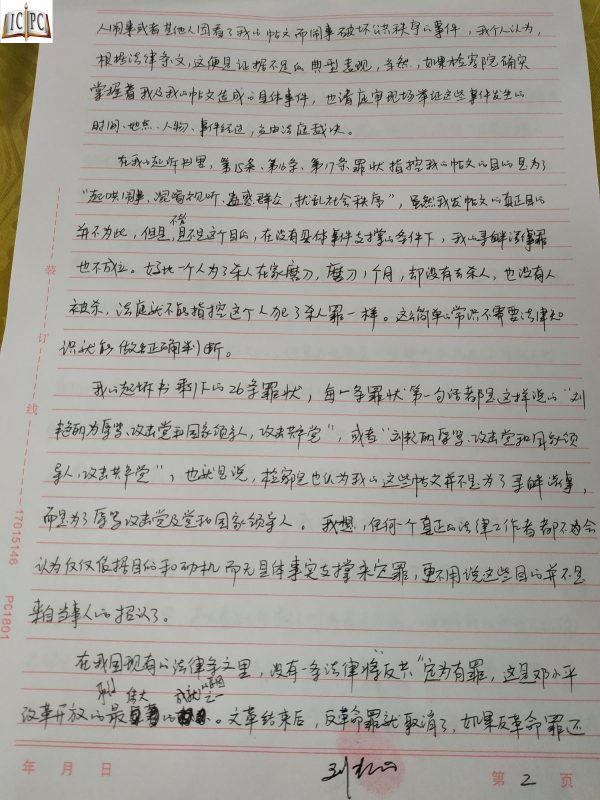 ICPC
人闹事或者其他人因看了我的帖文而闹事破坏公共秩序的事件，我个人认为，
根据法律条文，这便是证据不足的典型表现，当然，如果检察院确实
掌握着我及我的帖文造成的具体事件，也请庭审现场举证这些事件发生的
时间、地点、人物、事件经过，交由法庭裁决。
在我的起诉书里，第15条、第16条、第17条罪状指控我的帖文的目的是为了
“起哄闹事、混淆视听、蛊惑群众，扰乱社会秩序”，虽然我发帖文的真正目的
并不为此，但是，不管是不是这个目的，在没有具体事件支撑的条件下，我的寻衅滋事罪
也不成立。好比一个人为了杀人在家磨刀，磨刀1个月，却没有去杀人，也没有人
被杀，法庭就不能指控这个人犯了杀人罪一样。这么简单的常识不需要法律知
识就能做出正确判断。
我的起诉书剩下的26条罪状，每一条罪状第一句话都是这样说的“刘
艳丽为辱骂、攻击党和国家领导人，攻击共产党”，或者“刘艳丽辱骂、攻击党和国家领
导人，攻击共产党”，也就是说，检察院也认为我的这些帖文并不是为了寻衅滋事，
而是为了辱骂攻击党及党和国家领导人。我想，任何一个真正的法律工作者都不会
认为仅仅依据目的和动机而无具体事实支撑来定罪，更不用说这些目的并不是
来自当事人的招认了。
在我国现有的法律条文里，没有一条法律将“反共”定为有罪，这是邓小平
改革开放的最伟大的成就之一。文革结束后，反革命罪就取消了，如果反革命罪还
装
订
线
17015146 PC1801
年 月 日
第 2 页